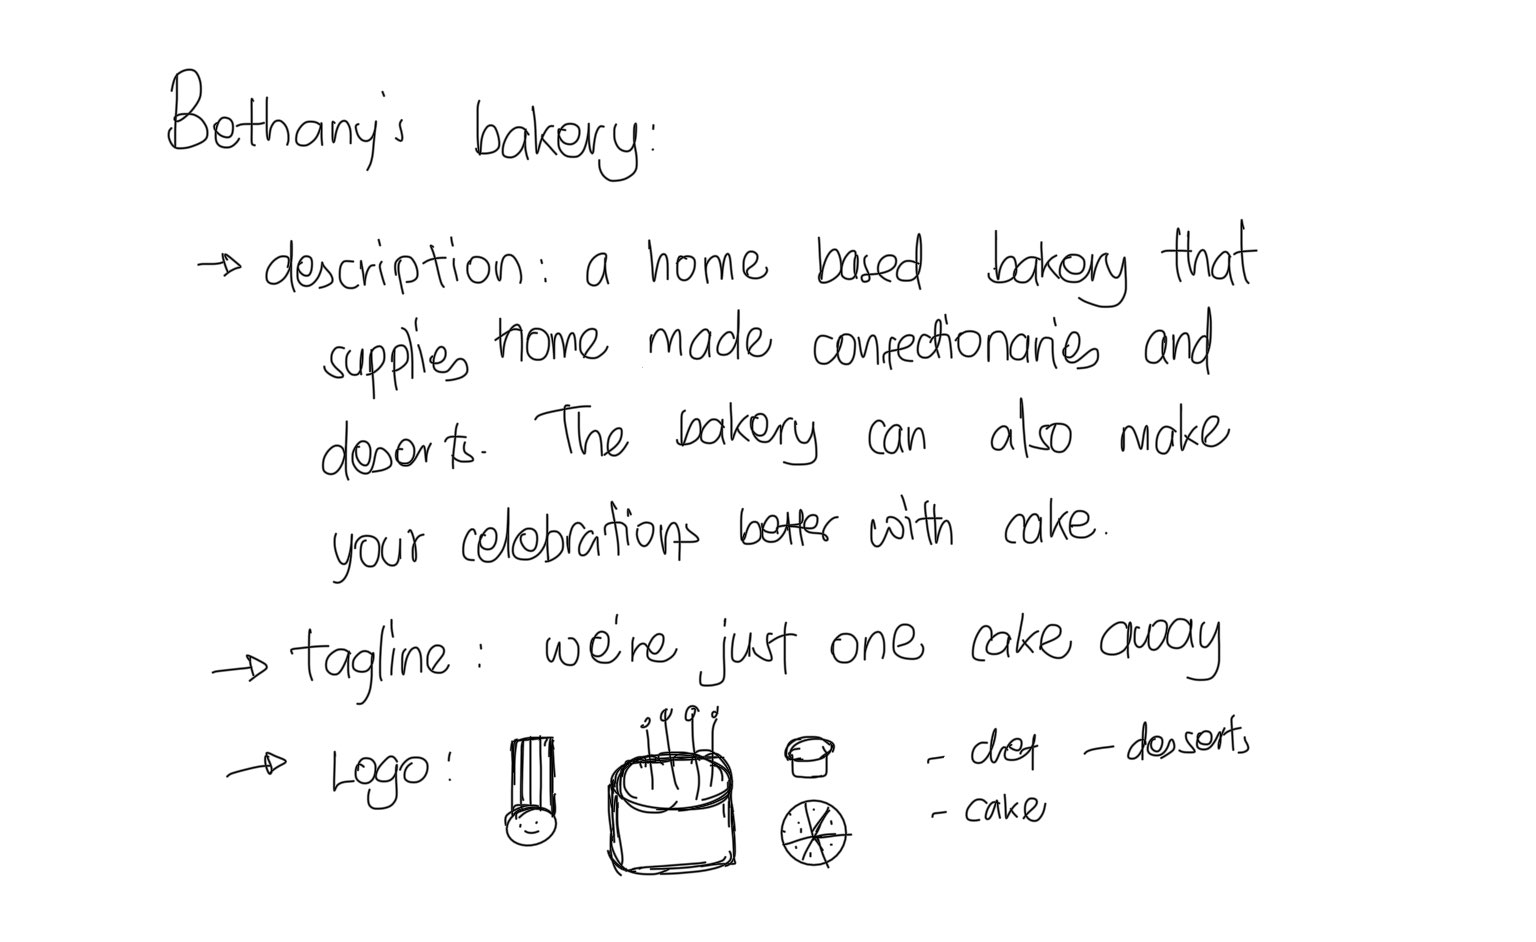 Bethany's bakery:
→ description: a home based bakery that
supplies home made confectionaries and
deserts. The bakery can also make
your celebrations better with cake.
→ tagline: we're just one cake away
→ Logo: - chef - desserts
- cake